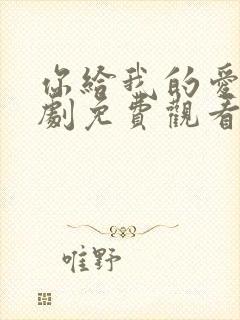 你給我的愛
劇免費觀看
唯野